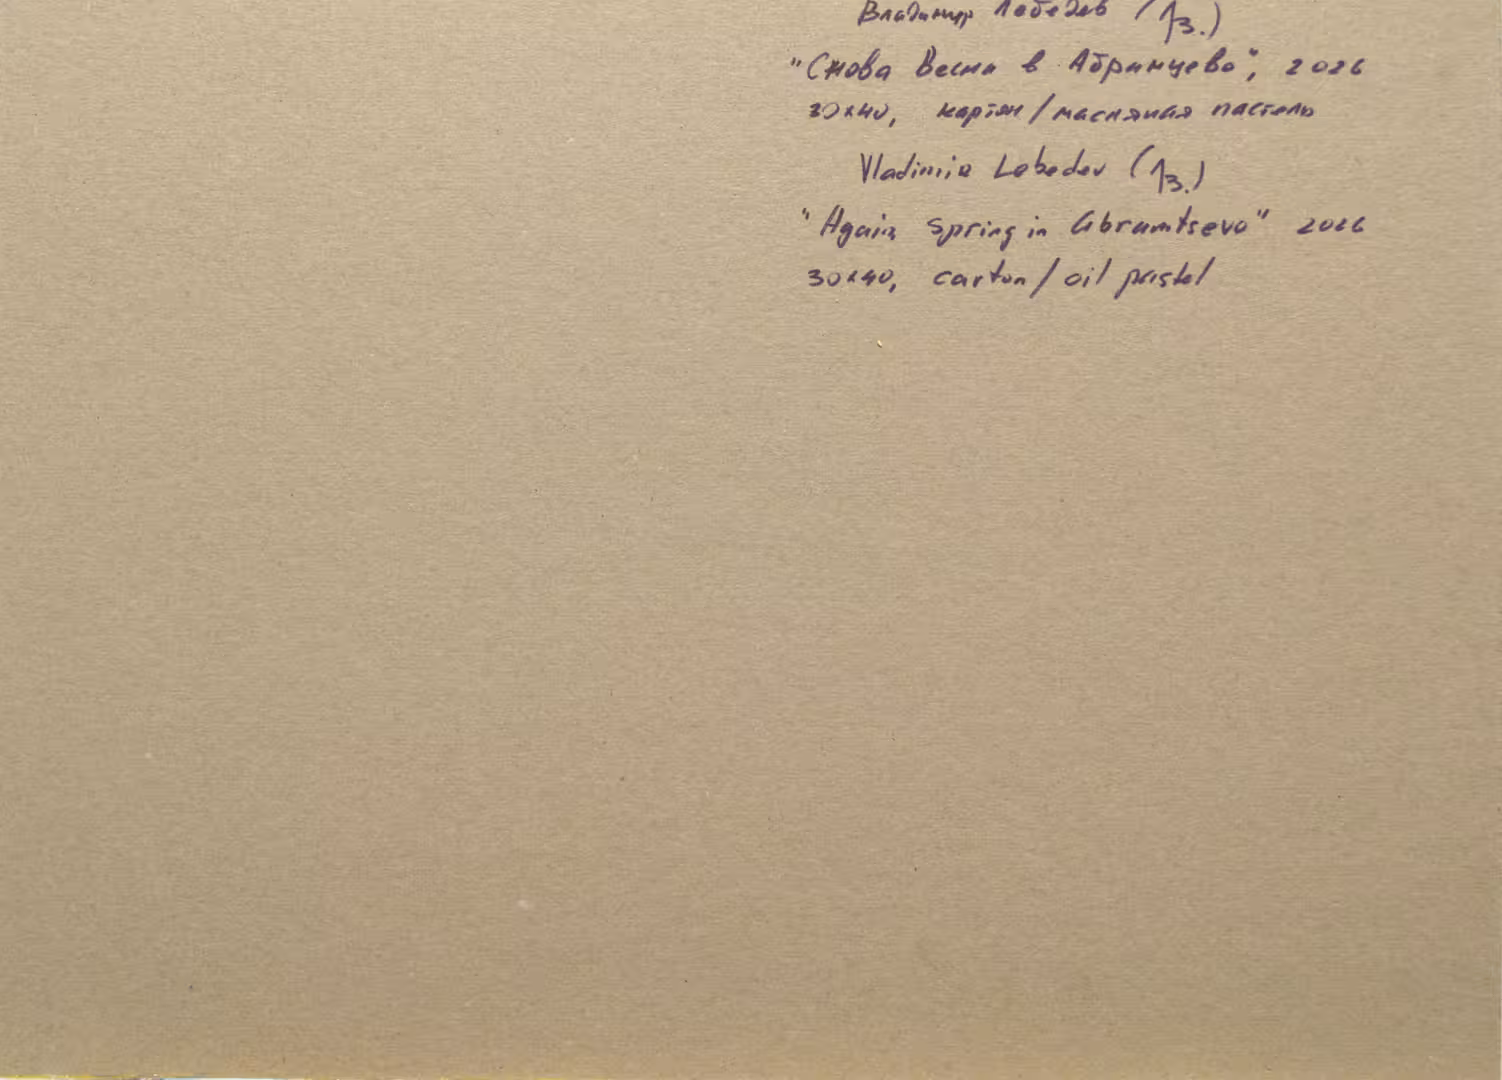 Владимир Лебедев (Лз.)
"Снова Весна в Абрамцево", 2026
30x40, картон/масляная пастель
Vladimir Lebedev (Лз.)
"Again Spring in Abramtsevo" 2026
30x40, carton/oil pastel